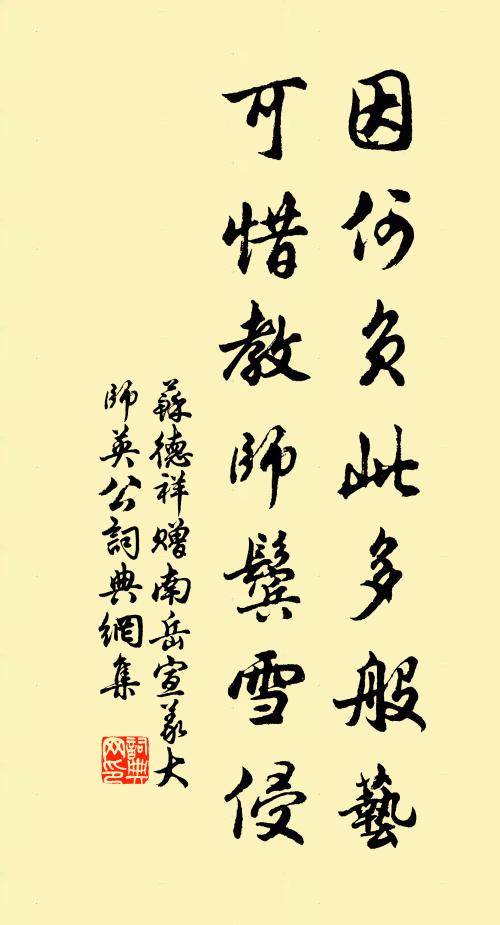 因何負此多般藝
可惜教師鬢雪侵
蘇德祥贈南岳宣義大
師英公詞典網集
詞典
网印